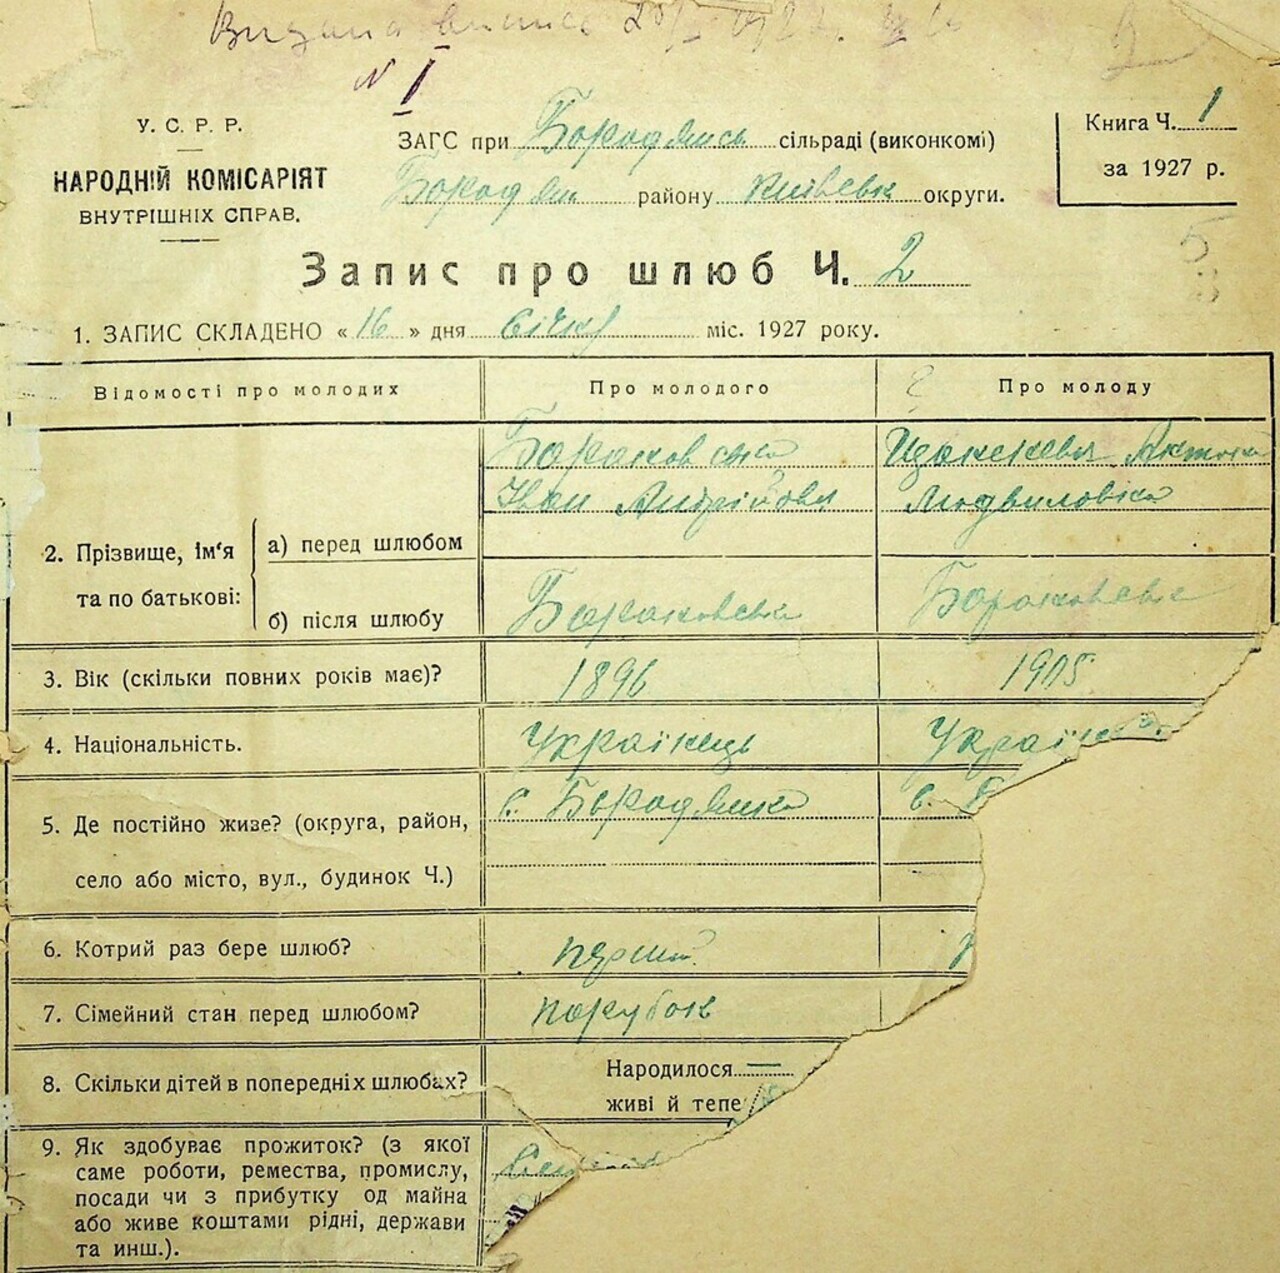 Видана виписка
№ 1
У. С. Р. Р.
НАРОДНІЙ КОМІСАРІЯТ
ВНУТРІШНІХ СПРАВ.
ЗАГС при Бородянськ сільраді (виконкомі)
Бородян району Київськ округи.
Книга Ч. 1
за 1927 р.
Запис про шлюб Ч. 2
1. ЗАПИС СКЛАДЕНО « 16 » дня січня міс. 1927 року.
Відомості про молодих
Про молодого
Про молоду
2. Прізвище, ім'я та по батькові:
а) перед шлюбом
Іван Андрійович
Людвиловна
б) після шлюбу
3. Вік (скільки повних років має)?
1896
1905
4. Національність.
Українець
Украї
5. Де постійно живе? (округа, район,
село або місто, вул., будинок Ч.)
с. Бородянка
с. Б
6. Котрий раз бере шлюб?
перший
7. Сімейний стан перед шлюбом?
парубок
8. Скільки дітей в попередніх шлюбах?
Народилося —
живі й тепе
9. Як здобуває прожиток? (з якої
саме роботи, ремества, промислу,
посади чи з прибутку од майна
або живе коштами рідні, держави
та инш.).